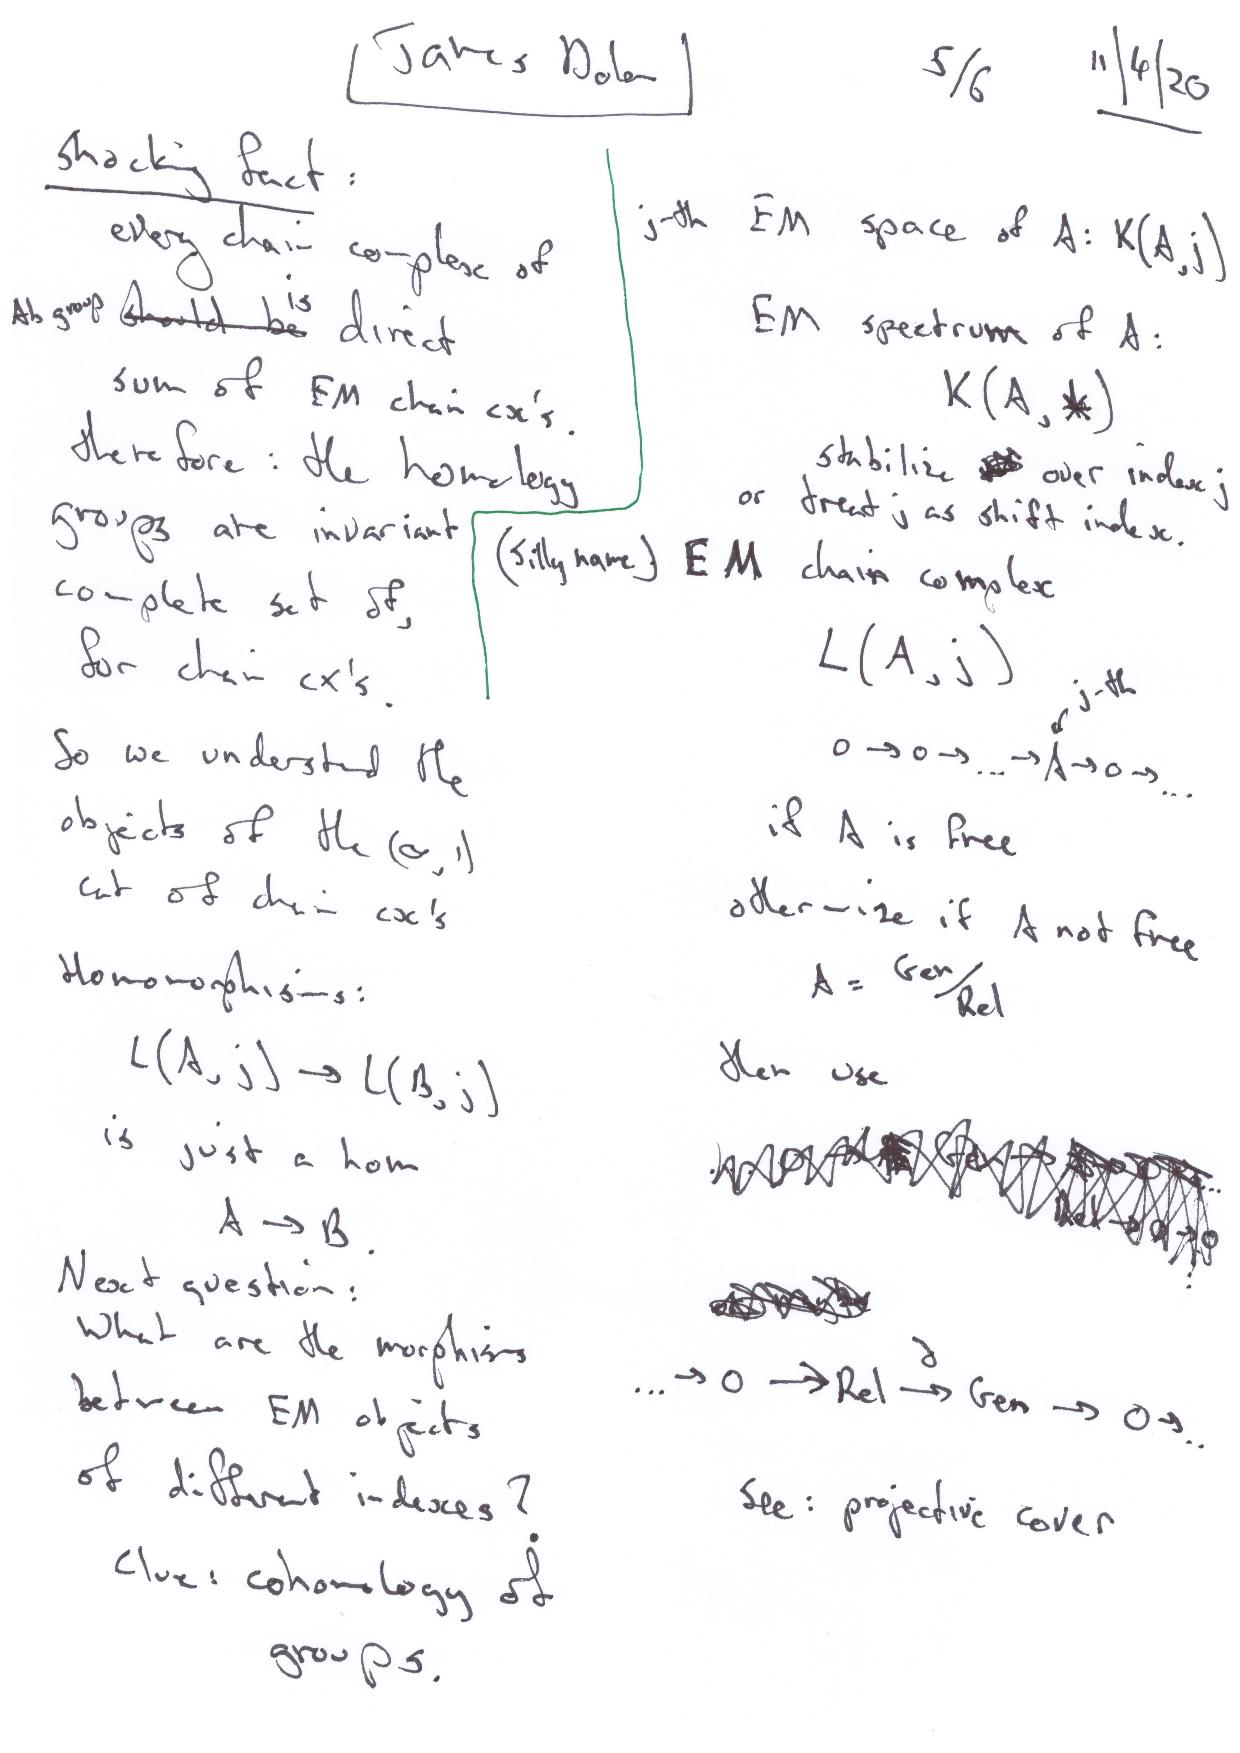 James Dolan
5/6
11/4/20
Shocking fact:
every chain complex of
Ab group is direct
sum of EM chain cx's.
therefore: the homology
groups are invariant
complete set of,
for chain cx's.
So we understand the
objects of the (∞, 1)
cat of chain cx's
Homomorphisms:
L(A, j) → L(B, j)
is just a hom
A → B.
Next question:
What are the morphisms
between EM objects
of different indexes?
Clue: cohomology of
groups.
j-th EM space of A: K(A, j)
EM spectrum of A:
K(A, *)
stabilize over index j
or treat j as shift index.
(silly name) EM chain complex
L(A, j)
j-th
0 → 0 → ... → A → 0 → ...
if A is free
otherwize if A not free
A = Gen/Rel
then use
... → 0 → Rel → Gen → 0 → ..
∂
See: projective cover